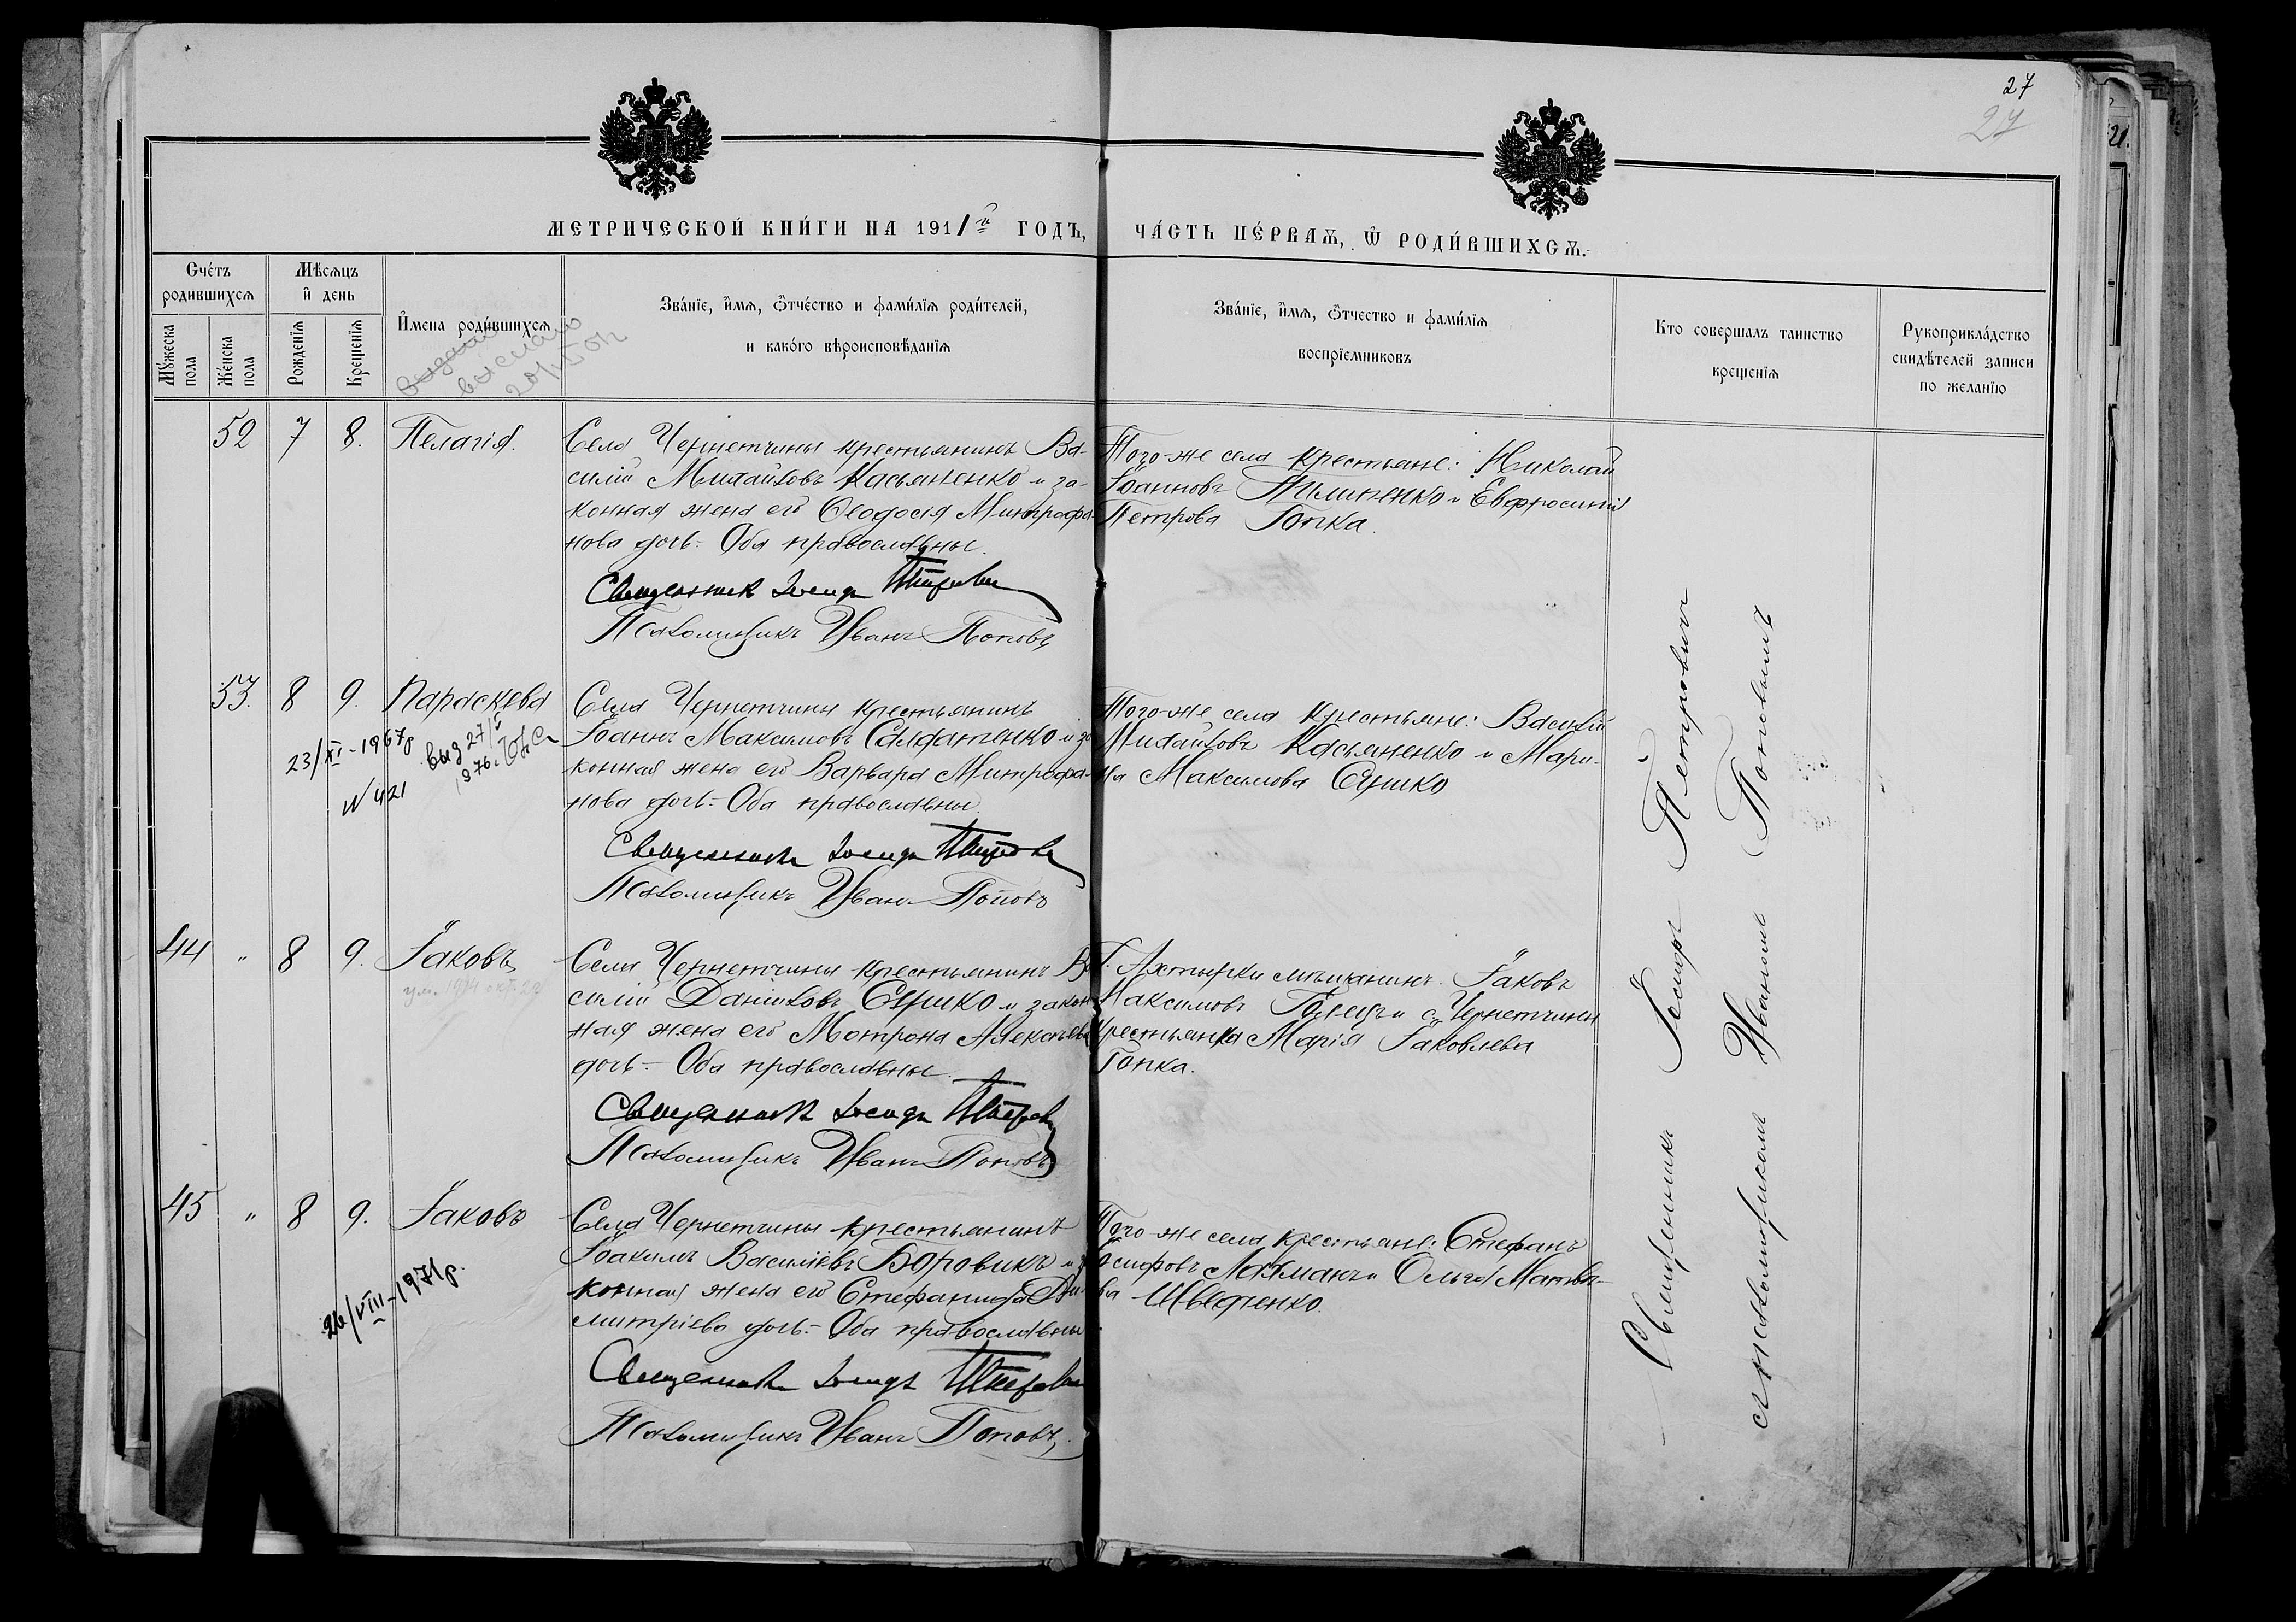 27
27
МЕТРИЧЕСКОЙ КНИ́ГИ НА 1911й ГОДЪ,
ЧА́СТЬ ПЕ́РВАѦ, Ѿ РОДИ́ВШИХСѦ.
Сче́тъ родившихсѧ
Мꙋ́жеска пола
Же́нска пола
Мѣсѧцъ и день
Рожденїѧ
Крещенїѧ
И́мена роди́вшихсѧ
выслано
Зва́нїе, и́мѧ, ѻ҆тче́ство и фами́лїѧ роди́телей,
и како́го вѣроисповѣ́данїѧ
Зва́нїе, и́мѧ, ѻ҆тчество и фами́лїѧ
воспрїемниковъ
Кто совершалъ таинство
крещенїѧ
Рукоприкла́дство
свидѣ́телей записи
по желанїю
52 7 8. Пелагія.
Села Чернетчины крестьянинъ Ва-
силій Михайловъ Касьяненко и за-
конная жена его Ѳеодосія Митрофа-
нова дочь.- Оба православные.
Священник Иосиф Петрович
Псаломщикъ Иванъ Поповъ
Того-же села крестьяне: Николай
Іоанновъ Пилипенко и Евфросинія
Петрова Гопка.
53. 8 9. Параскева
23/XI-1967р
N 421
выд 27/I
1976.
Села Чернетчины крестьянинъ
Іоаннъ Максимовъ Солдатенко и за-
конная жена его Варвара Митрофа-
нова дочь.- Оба православные.
Священник Иосиф Петрович
Псаломщикъ Иванъ Поповъ
Того-же села крестьяне: Василій
Михайловъ Касьяненко и Мари-
на Максимова Ецико
44 " 8 9. Іаковъ
ум. 1974 окт. 22
Села Чернетчины крестьянинъ Ва-
силій Даніиловъ Ецико и закон-
ная жена его Мотрона Алексѣева
дочь.- Оба православные.
Священник Иосиф Петрович
Псаломщикъ Иванъ Поповъ
Г. Ахтырки мѣщанинъ Іаковъ
Максимовъ и с. Чернетчины
крестьянка Марія Іаковлева
Гопка.
45 " 8 9. Іаковъ
26/VIII-1971р.
Села Чернетчины крестьянинъ
Іоакимъ Василіевъ Боровикъ и за-
конная жена его Стефанида Ди-
митріева дочь.- Оба православные
Священник Иосиф Петрович
Псаломщикъ Иванъ Поповъ
Того-же села крестьяне: Стефанъ
Іосифовъ Лахманъ и Ольга Матвѣе-
ва Шведченко.
Священникъ Іосифъ Петровичъ
съ псаломщикомъ Иваномъ Поповымъ